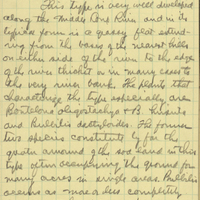 This type is very well developed
along the Made Cone Run and in its
typical form is a grassy flat extend-
ing from the bases of the nearest hills
on either side of the river to the edge
of the river thicket or in many cases to
the very river bank. The plants that
characterize the type especially are
Bouteloua oligostachya + B. hirsuta
and Bulbilis dactyloides. The former
two species constitute by far the
greater amount of the sod and in this
type often occupying the ground for
many acres in single areas. Bulbilis
occurs as more or less completely